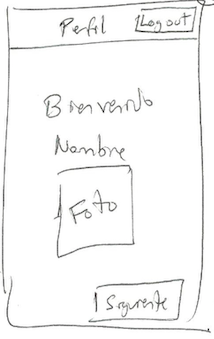 Perfil Logout
Bienvenido
Nombre
Foto
Siguiente